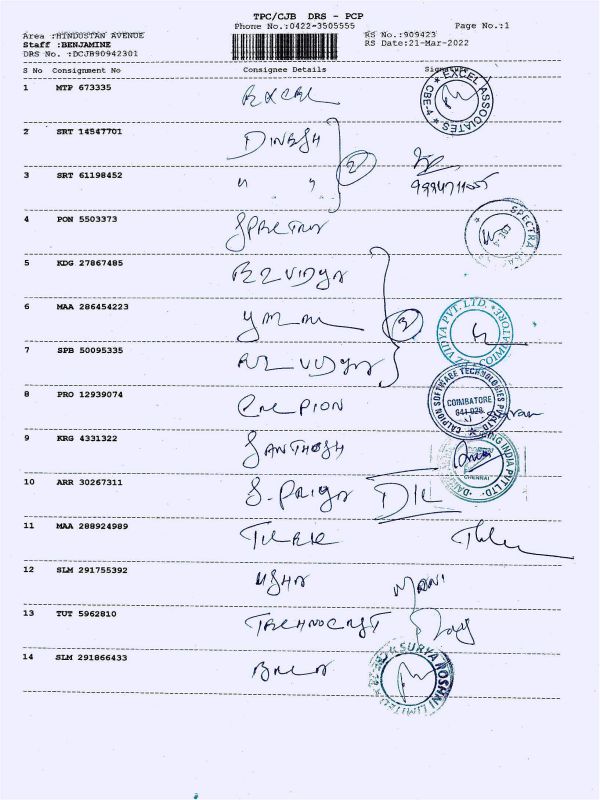 TPC/CJB DRS - PCP
Phone No.:0422-3505555 Page No.:1
Area :HINDUSTAN AVENUE RS No.:909423
Staff :BENJAMINE RS Date:21-Mar-2022
DRS No. :DCJB90942301
S No Consignment No Consignee Details Signature
1 MTP 673335 EXCEL EXCEL ASSOCIATES CBE-4
2 SRT 14547701 DINESH
3 SRT 61198452 " " 2
4 PON 5503373 SPECTRA SPECTRA
5 KDG 27867485 EZ VIDYA
6 MAA 286454223 3 VIDYA PVT. LTD.
7 SPB 50095335 EZ VIDYA
8 PRO 12939074 CALPION CALPION SOFTWARE TECHNOLOGIES COIMBATORE 641 028
9 KRG 4331322 SANTHOSH INDIA PVT LTD. CHENNAI
10 ARR 30267311 S. PRIYA
11 MAA 288924989
12 SLM 291755392 USHA MANI
13 TUT 5962810 TECHNOCRAFT
14 SLM 291866433 SURYA ROSHNI LIMITED